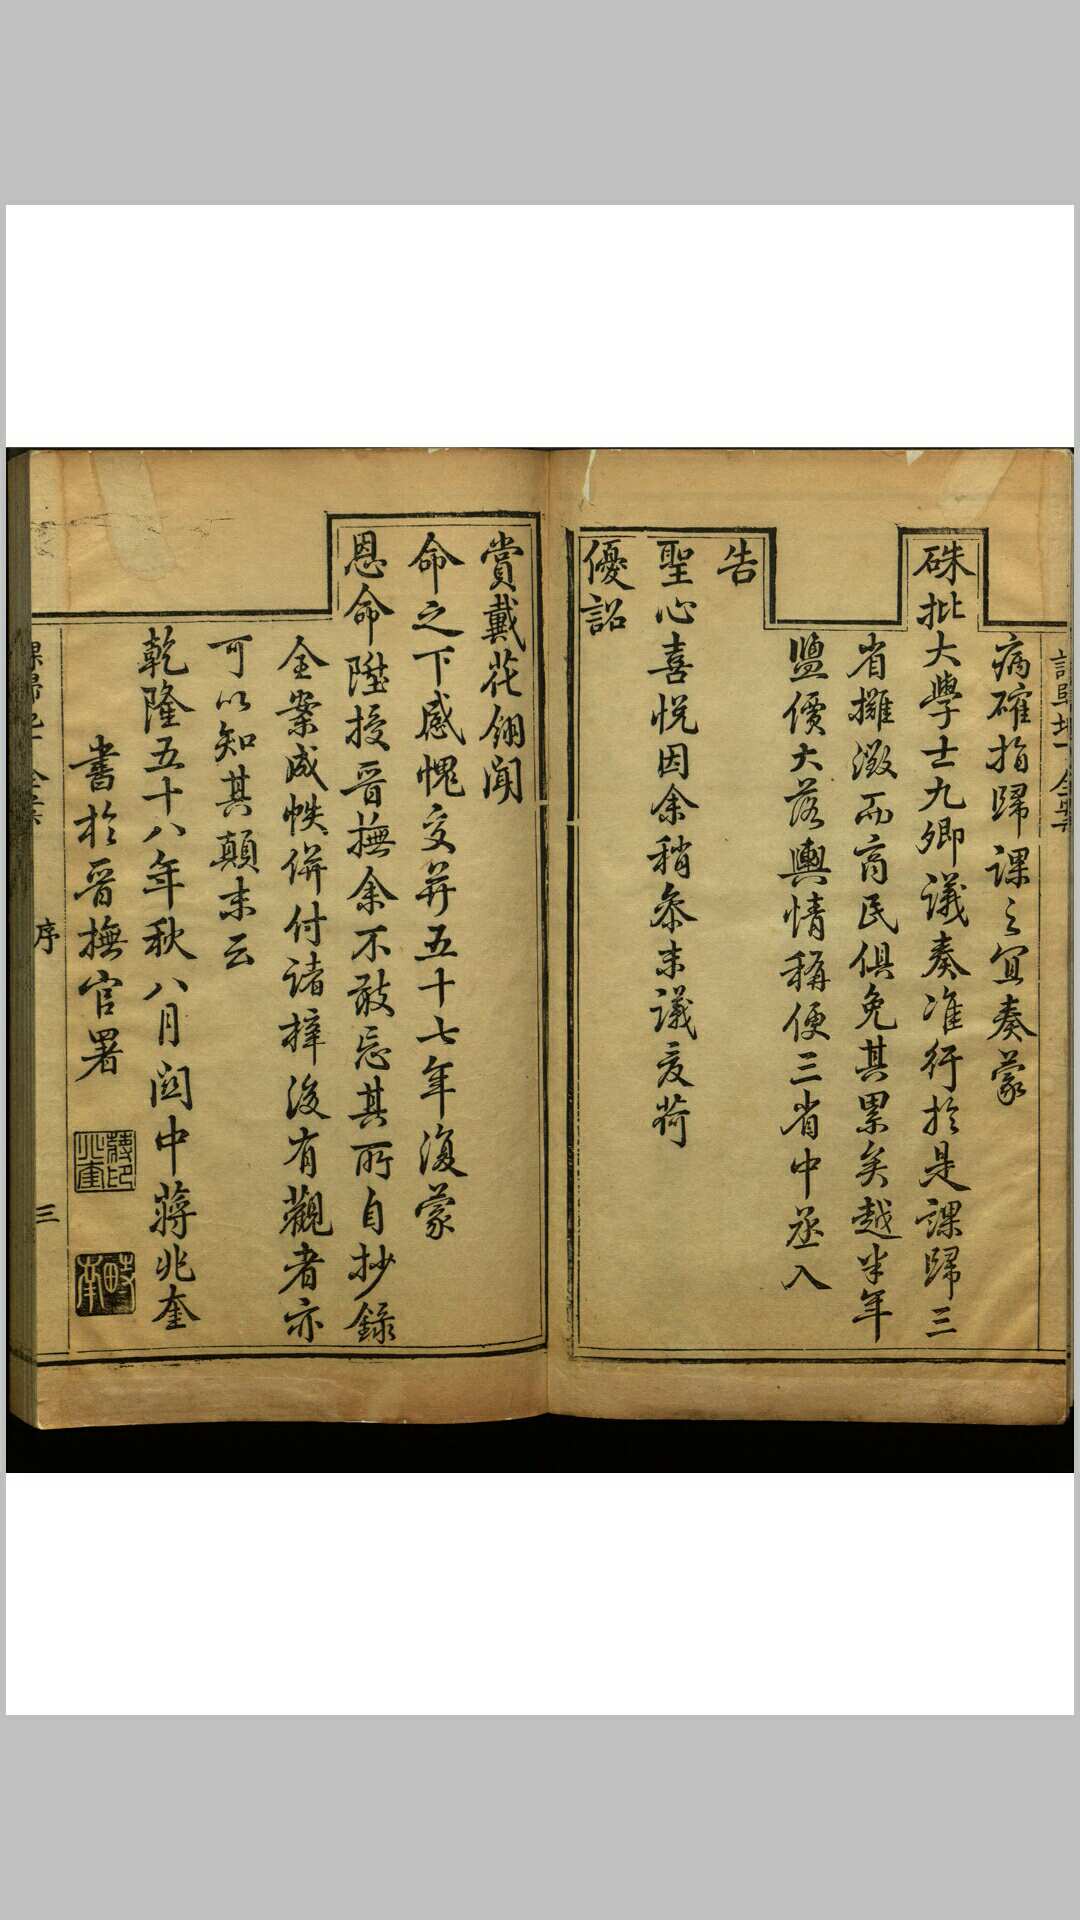 病確指歸課之宜奏蒙
硃批大學士九卿議奏准行於是課歸三
省攤徵而商民俱免其累矣越半年
鹽價大落輿情稱便三省中丞入
告
聖心喜悅因余稍叅末議爰荷
優詔
賞戴花翎聞
命之下感愧交并五十七年復蒙
恩命陞授晉撫余不敢忘其所自抄錄
全案成帙併付諸梓後有觀者亦
可以知其顛末云
乾隆五十八年秋八月關中蔣兆奎
書於晉撫官署
蔣兆奎印
時南
序
三